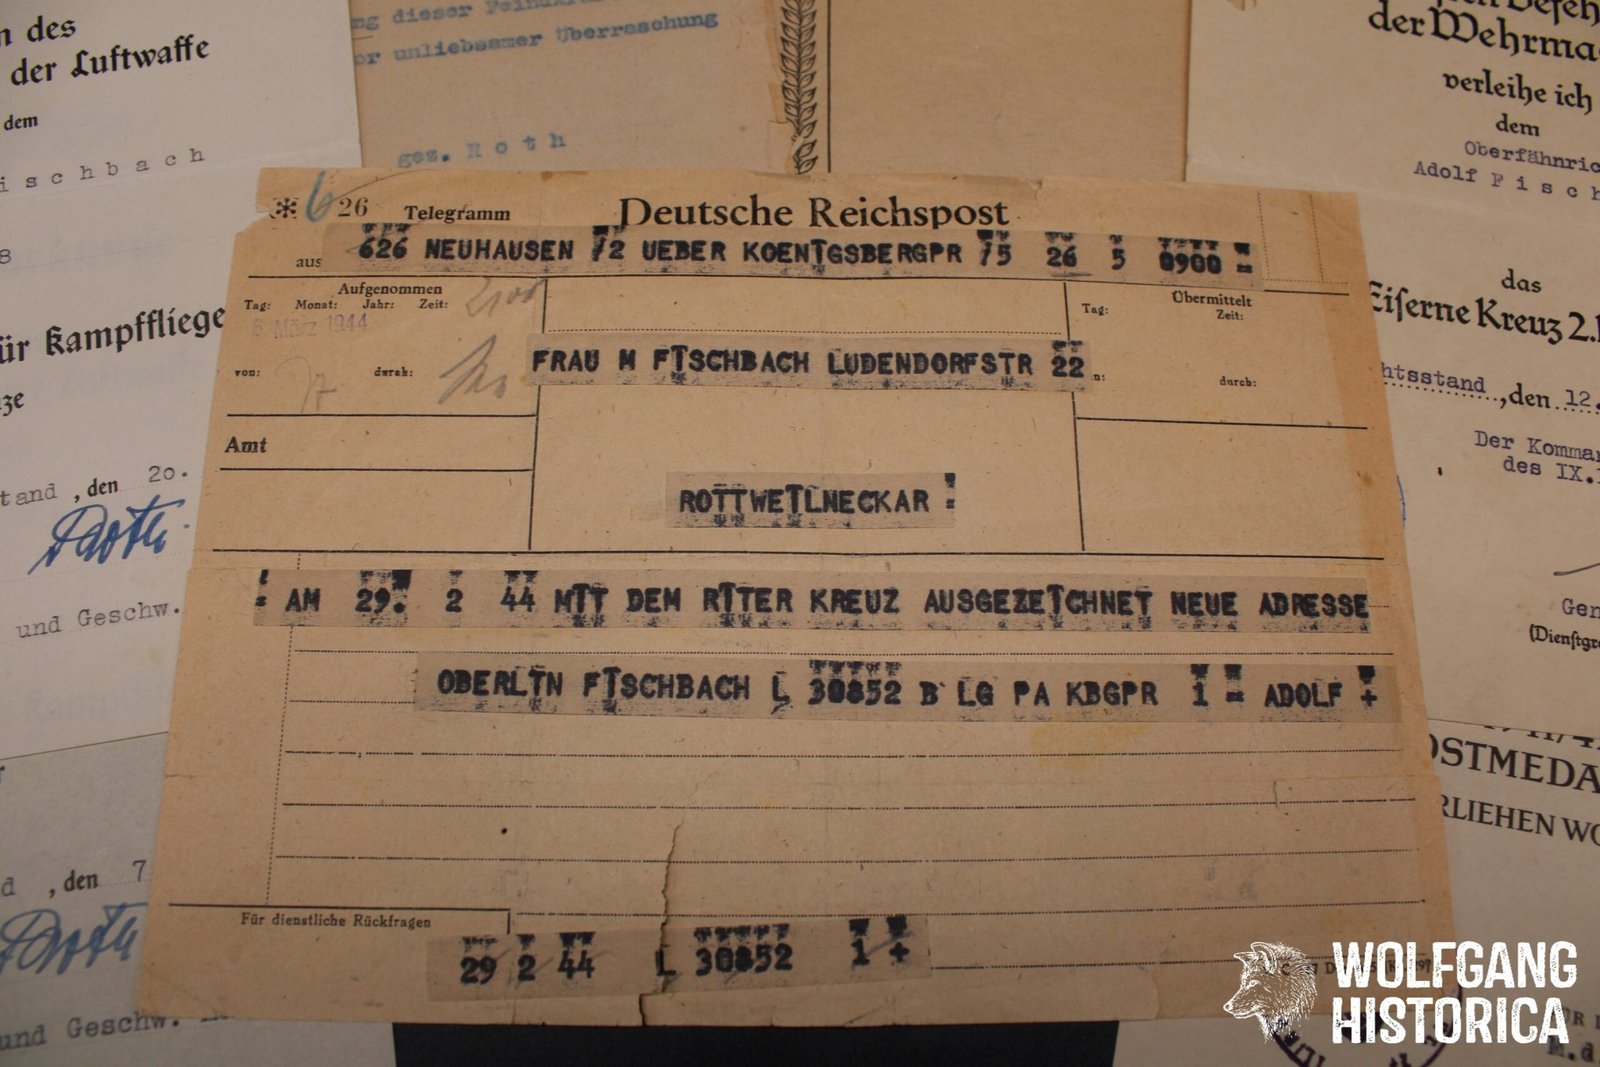 n des
der Luftwaffe
dem
ischbach
8
ür Kampffliege
ze
tand , den 20.
Roth
und Geschw.
d , den 7
Roth
und Geschw.
ng dieser
or unliebsamer Überraschung
gez. Roth
der Wehrma
verleihe ich
dem
Oberfähnric
Adolf Fisch
das
Eiserne Kreuz 2.
htsstand , den 12.
Der Komman
des IX.
Gen
(Dienstgr
OSTMEDA
RLIEHEN WO
6 26 Telegramm Deutsche Reichspost
aus 626 NEUHAUSEN 72 UEBER KOENIGSBERGPR 75 26 5 0900 =
Aufgenommen
Tag: Monat: Jahr: Zeit:
6. März 1944
von: durch:
Übermittelt
Tag: Zeit:
n: durch:
FRAU M FISCHBACH LUDENDORFSTR 22
Amt
ROTTWEILNECKAR =
= AM 29. 2 44 MIT DEM RITTER KREUZ AUSGEZEICHNET NEUE ADRESSE
OBERLTN FISCHBACH L 30852 B LG PA KBGPR 1 = ADOLF +
Für dienstliche Rückfragen
29 2 44 L 30852 1 +
WOLFGANG
HISTORICA